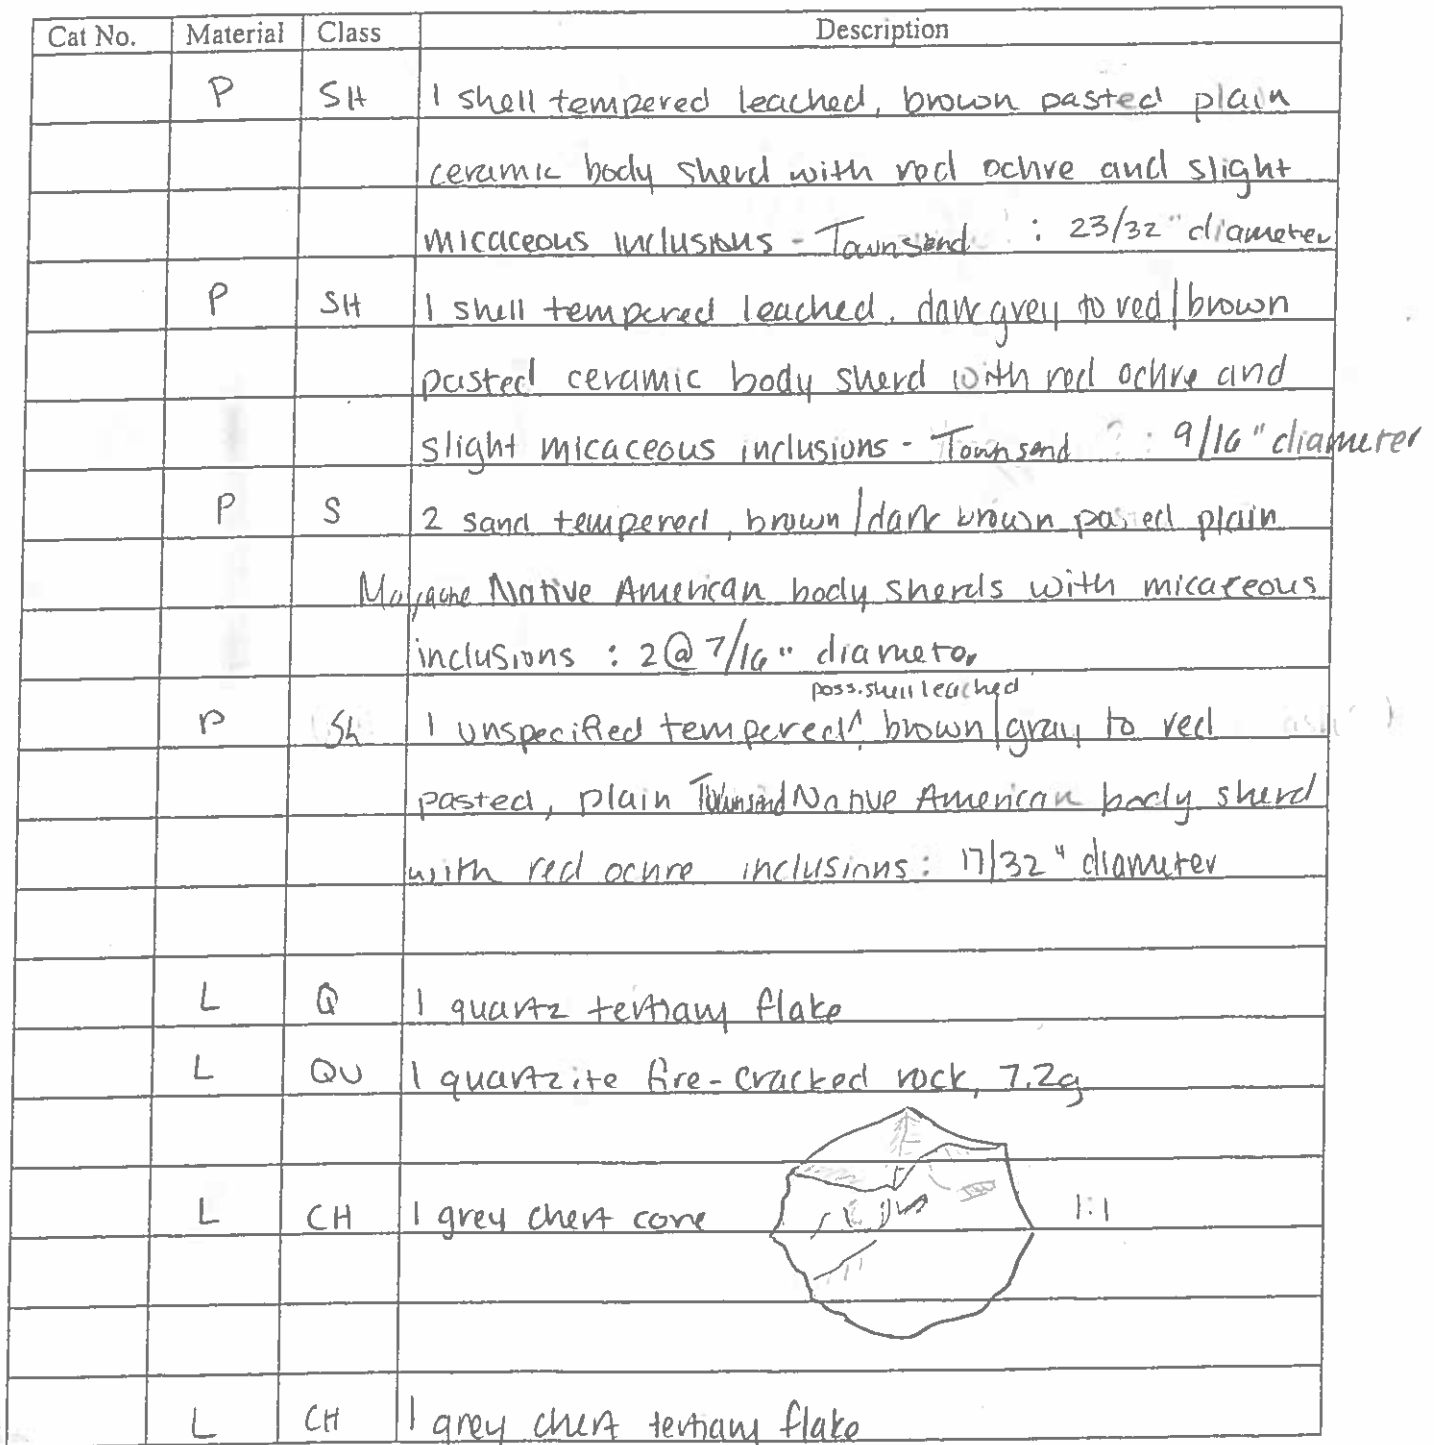 Cat No. Material Class Description
P SH 1 shell tempered leached, brown pasted plain
ceramic body sherd with red ochre and slight
micaceous inclusions - Townsend : 23/32" diameter
P SH 1 shell tempered leached, dark grey to red/brown
pasted ceramic body sherd with red ochre and
slight micaceous inclusions - Townsend : 9/16" diameter
P S 2 sand tempered, brown/dark brown pasted plain
Native American body sherds with micaceous
inclusions : 2@ 7/16" diameter
poss. shell leached
P Sh 1 unspecified tempered^ brown/gray to red
pasted, plain Townsend Native American body sherd
with red ochre inclusions: 17/32" diameter
L Q 1 quartz tertiary flake
L QU 1 quartzite fire-cracked rock, 7.2g
L CH 1 grey chert core 1:1
L CH 1 grey chert tertiary flake